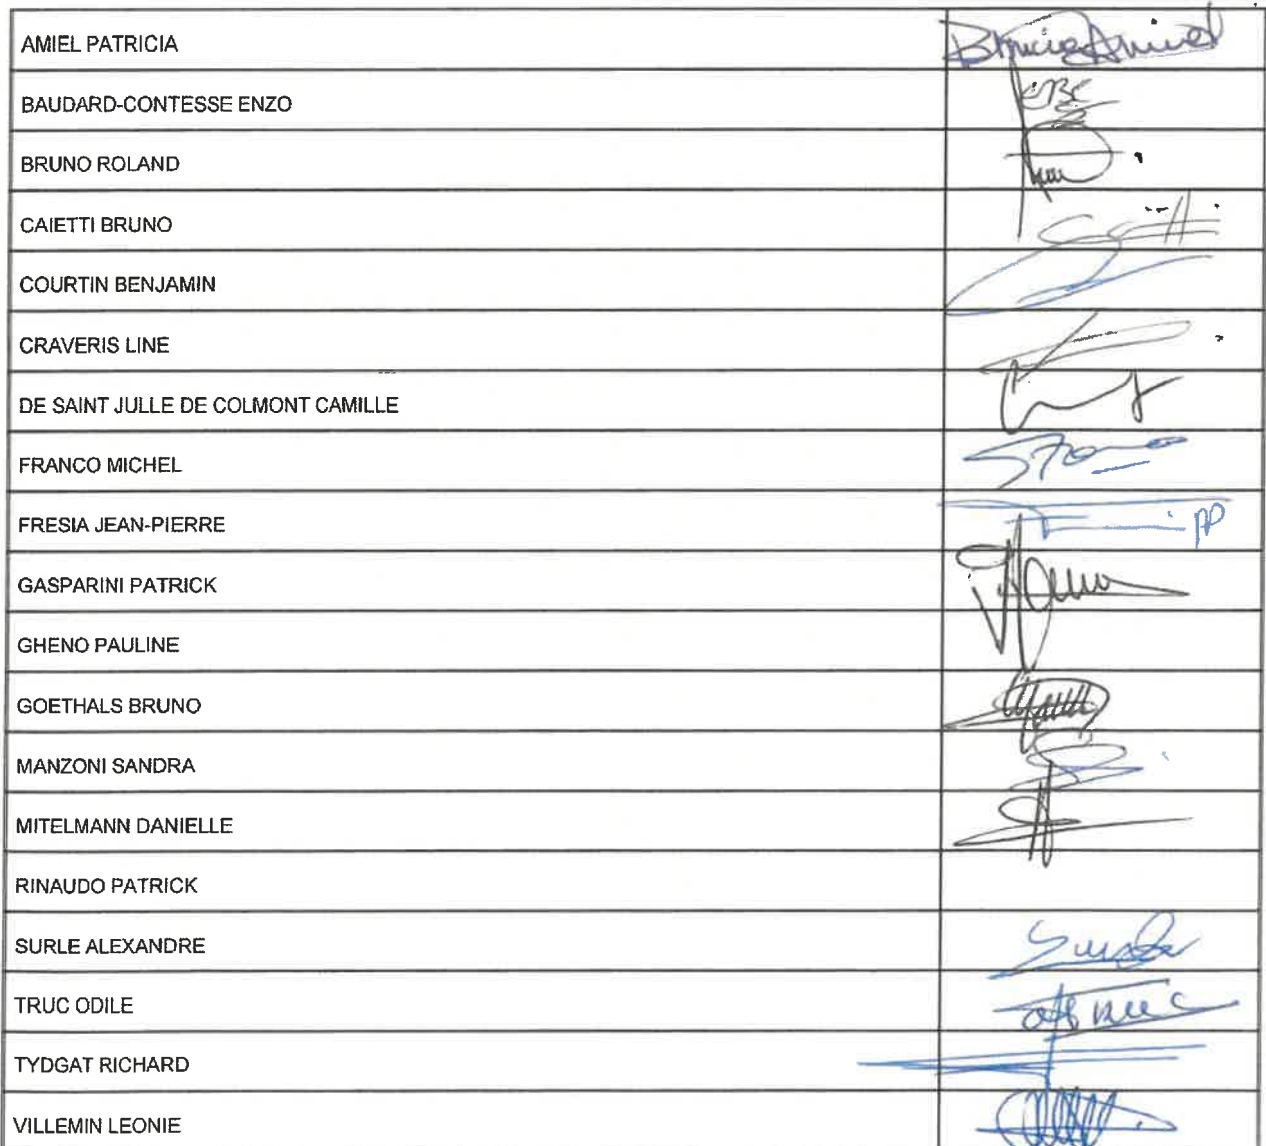 AMIEL PATRICIA
BAUDARD-CONTESSE ENZO
BRUNO ROLAND
CAIETTI BRUNO
COURTIN BENJAMIN
CRAVERIS LINE
DE SAINT JULLE DE COLMONT CAMILLE
FRANCO MICHEL
FRESIA JEAN-PIERRE
PP
GASPARINI PATRICK
GHENO PAULINE
GOETHALS BRUNO
MANZONI SANDRA
MITELMANN DANIELLE
RINAUDO PATRICK
SURLE ALEXANDRE
TRUC ODILE
TYDGAT RICHARD
VILLEMIN LEONIE